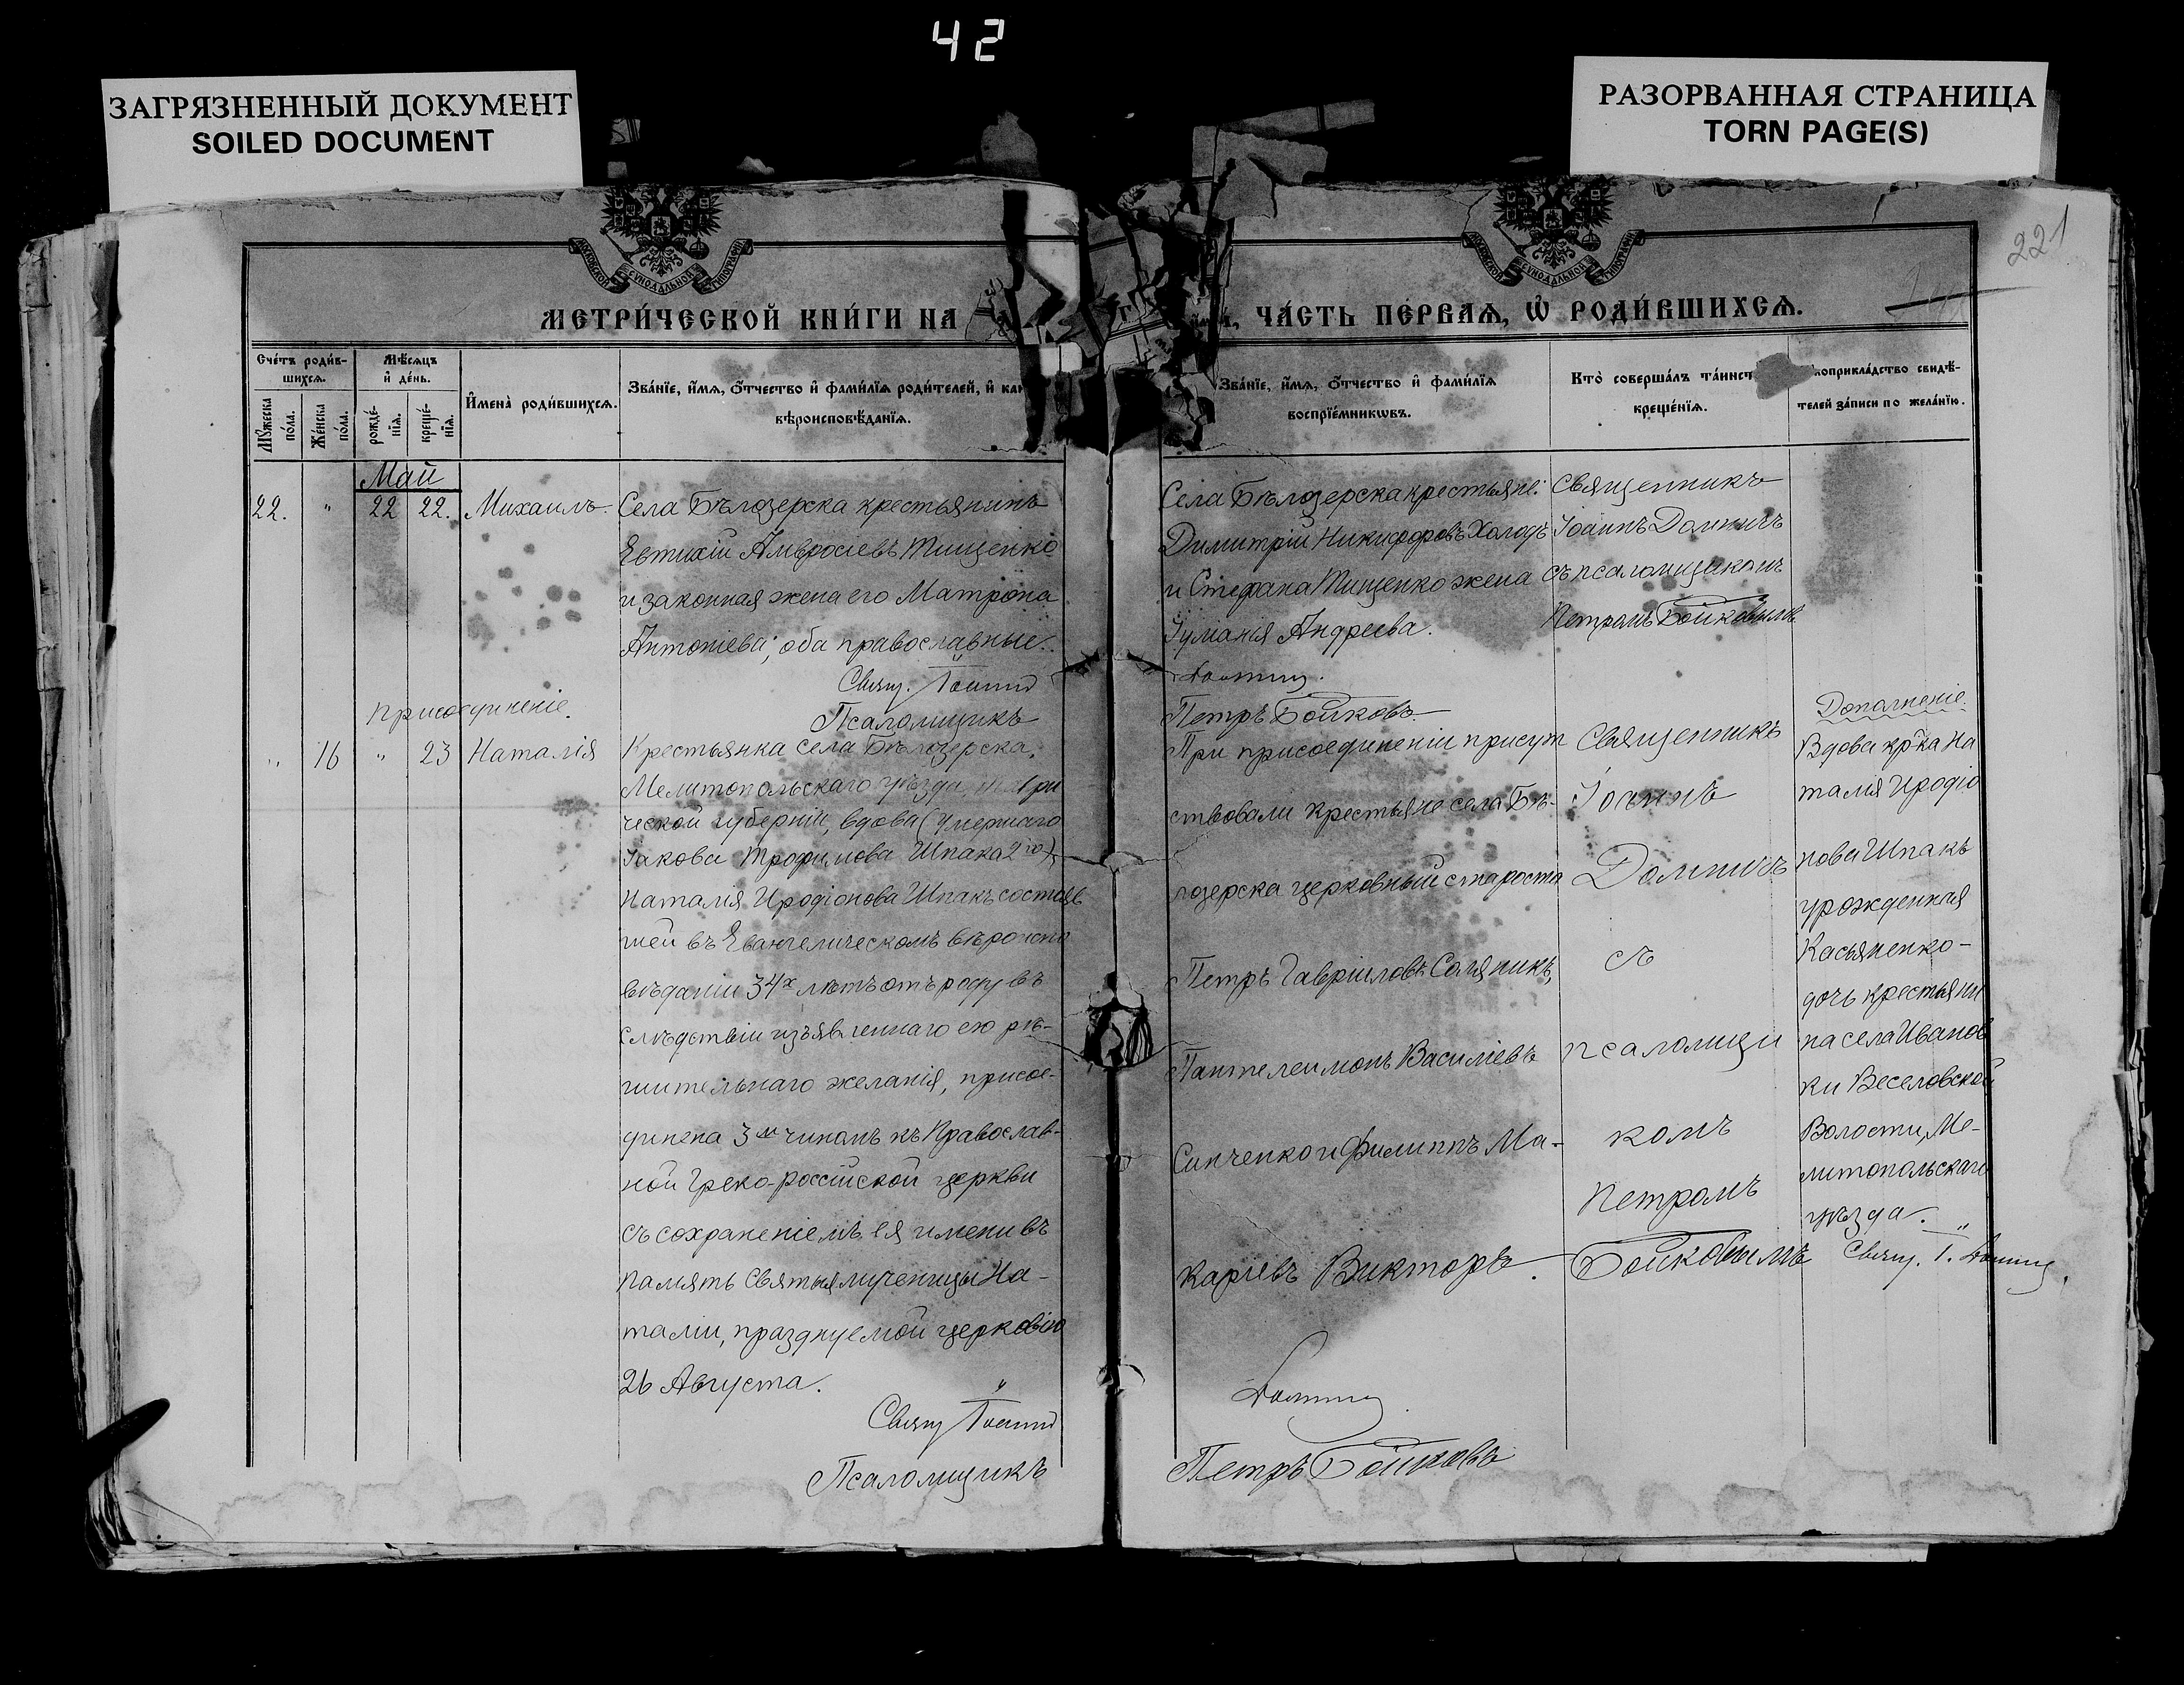 42
ЗАГРЯЗНЕННЫЙ ДОКУМЕНТ
SOILED DOCUMENT
РАЗОРВАННАЯ СТРАНИЦА
TORN PAGE(S)
221
МОСКОВСКОЙ СУНОДАЛЬНОЙ ТИПОГРАФІИ
МОСКОВСКОЙ СУНОДАЛЬНОЙ ТИПОГРАФІИ
МЕТРИ́ЧЕСКОЙ КНИ́ГИ НА
ЧА́СТЬ ПЕ́РВАѦ, Ѽ РОДИ́ВШИХСѦ.
Сче́тъ роди́в-
шихсѧ.
Мѣ́сѧцъ
и҆ де́нь.
Му́жеска по́ла.
Же́нска по́ла.
рожде́-нїѧ.
креще́-нїѧ.
И҆мена̀ роди́вшихсѧ.
Зва́нїе, и҆́мѧ, ѻ҆́тчество и҆ фами́лїѧ роди́телей, и҆ как
вѣроисповѣ́данїѧ.
Зва́нїе, и҆́мѧ, ѻ҆́тчество и҆ фами́лїѧ
воспрїе́мникѡвъ.
Кто̀ соверша́лъ та́инст
креще́нїѧ.
коприкла́дство свидѣ́-
телей за́писи по жела́нїю.
Май
22. " 22 22. Михаилъ.
Села Бѣлозерска крестьянинъ
Евтихій Амвросіевъ Тищенко
и законная жена его Матрона
Антоніева; оба православные.
Свящ. Іоаннъ
Псаломщикъ
Села Бѣлозерска крестьяне:
Димитрій Никифоровъ Холодъ
и Стефана Тищенко жена
Іуліанія Андреева.
Петръ Бойковъ
Священникъ
Іоаннъ
съ псаломщикомъ
Петромъ Бойковымъ
Присоединеніе.
" 16 " 23 Наталія
Крестьянка села Бѣлозерска,
Мелитопольскаго уѣзда, Таври
ческой губерніи, вдова (умершаго
Іакова Трофимова Шпака 2го)
Наталія Иродіонова Шпакъ состояв
шей въ Евангелическомъ вѣроиспо
вѣданіи 34х лѣтъ отъ роду въ
слѣдствіи изъявленнаго ею рѣ-
шительнаго желанія, присое-
динена 3м чиномъ къ Православ-
ной Греко-россійской церкви
съ сохраненіемъ ея имени въ
память Святыя мученицы На-
таліи, празднуемой церковію
26 Августа.
Свящ Іоаннъ
Псаломщикъ
При присоединеніи присут
ствовали крестьяне села Бѣ-
лозерска церковный староста
Петръ Гавріиловъ Соляникъ,
Пантелеимонъ Василіевъ
Синченко и Филиппъ Ма-
каріевъ Викторъ.
Петръ Бойковъ
Священникъ
Іоаннъ
съ
псаломщи
комъ
Петромъ
Бойковымъ
Дополненіе.
Вдова кр-ка На
талія Иродіо
нова Шпакъ
урожденная
Касьяненко-
дочь крестьяни
на села Иванов
ки Веселовской
Волости, Ме-
литопольскаго
уѣзда.
Свящ. І.